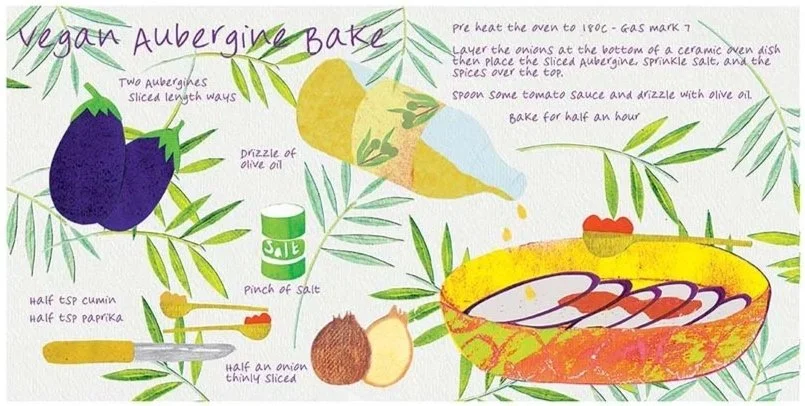 Vegan Aubergine Bake
Two Aubergines
sliced length ways
Drizzle of
olive oil
Salt
Pinch of salt
Half tsp cumin
Half tsp paprika
Half an onion
thinly sliced
Pre heat the oven to 180c - Gas mark 7
Layer the onions at the bottom of a ceramic oven dish
then place the sliced Aubergine, sprinkle salt, and the
spices over the top.
Spoon some tomato sauce and drizzle with olive oil
Bake for half an hour